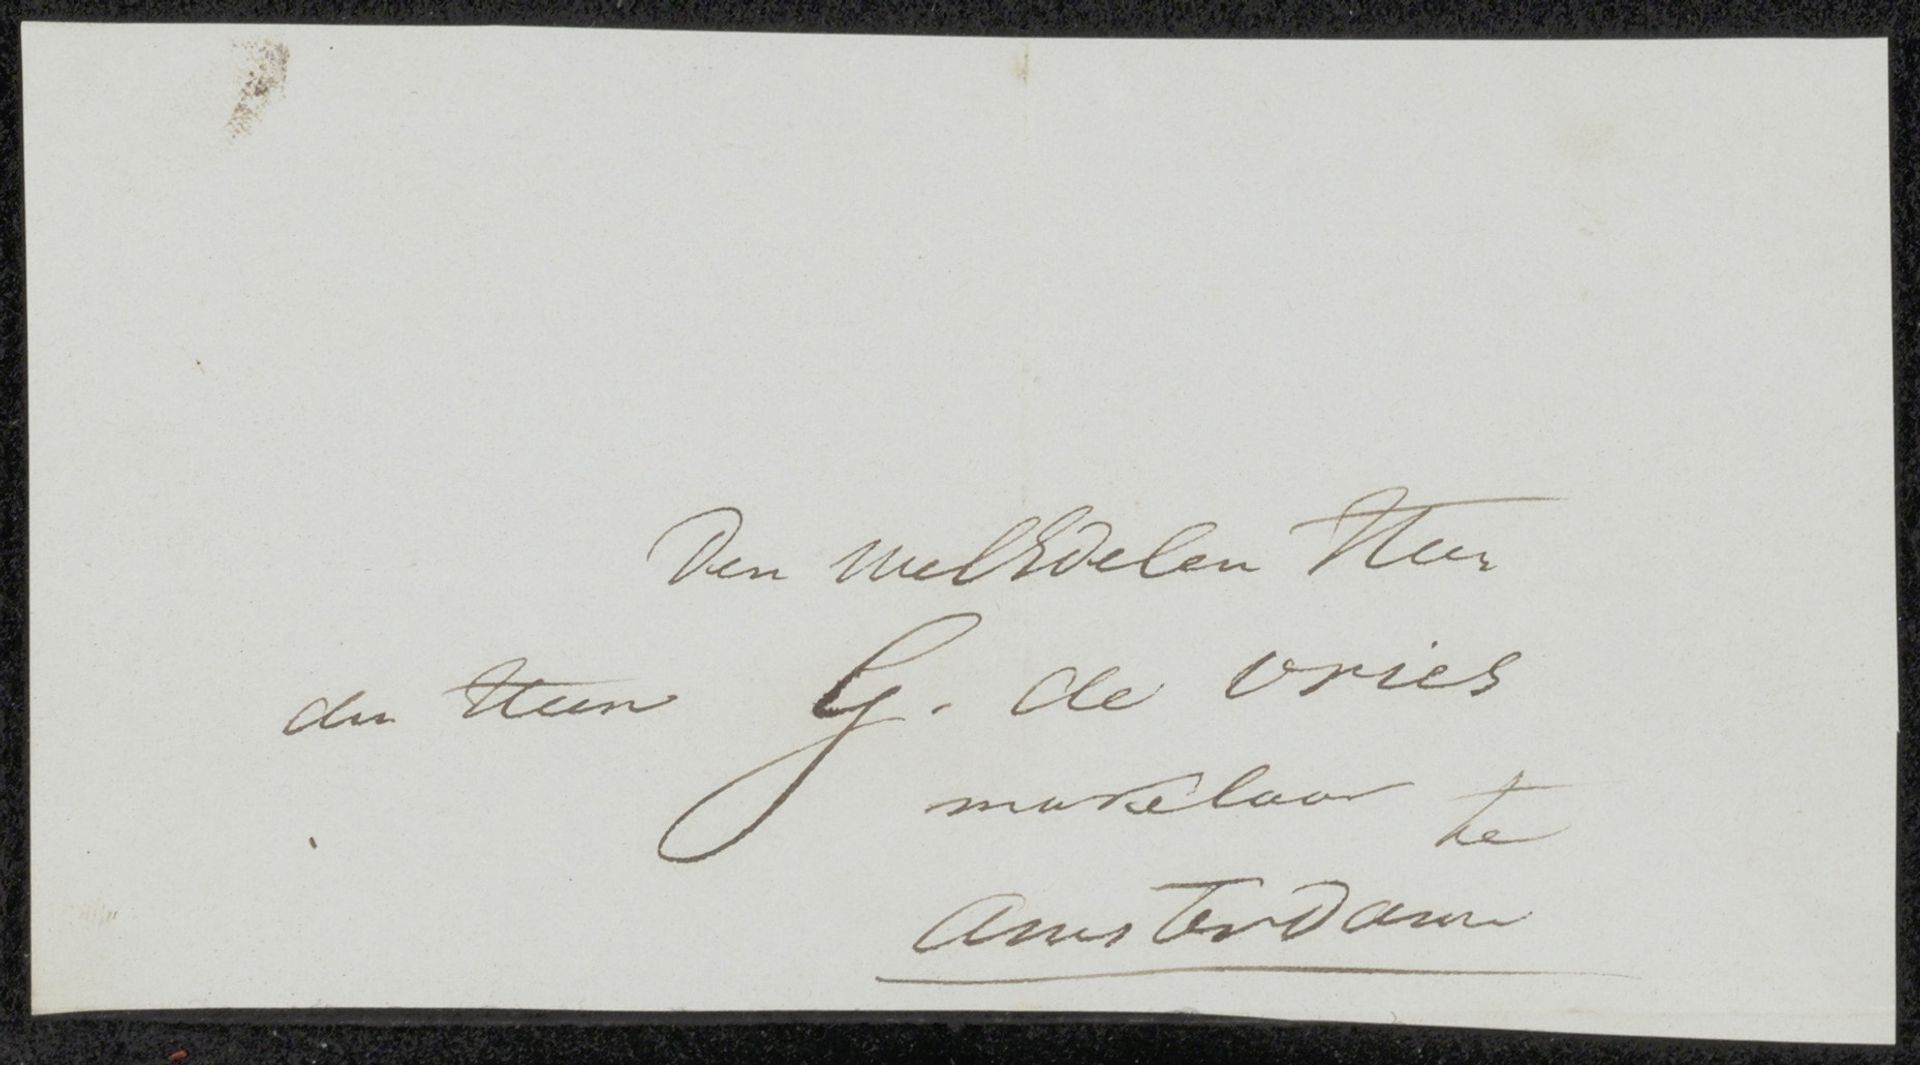 Den WelEdelen Heer
den Heer G. de Vries
makelaar te
Amsterdam